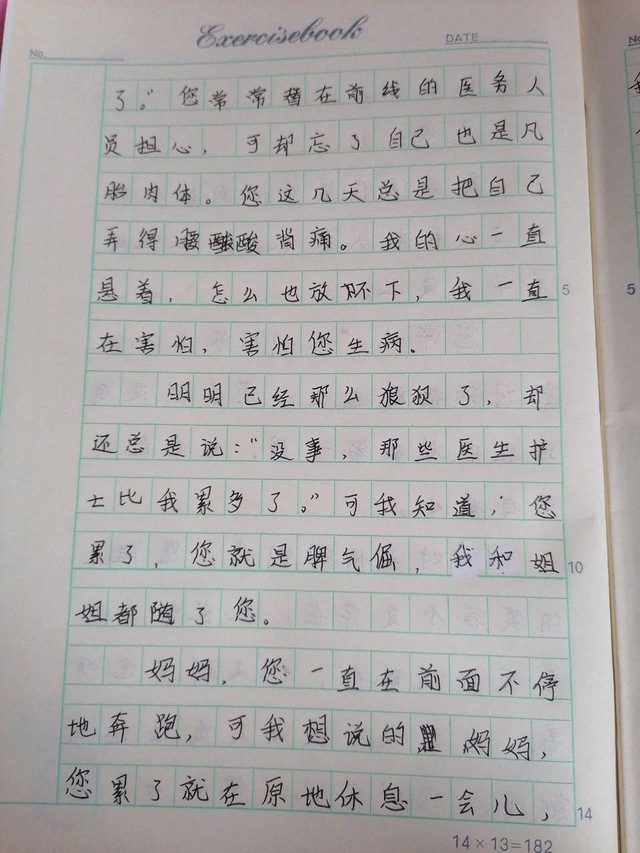 Exercisebook
No.
DATE
了。”您常常替在前线的医务人
员担心，可却忘了自己也是凡
胎肉体。您这几天总是把自己
弄得腰酸背痛。我的心一直
悬着，怎么也放不下，我一直
5
5
在害怕，害怕您生病。
明明已经那么狼狈了，却
还总是说：“没事，那些医生护
士比我累多了。”可我知道，您
累了，您就是脾气倔，我和姐
10
姐都随了您。
妈妈，您一直在前面不停
地奔跑，可我想说的是妈妈，
您累了就在原地休息一会儿，
14
14×13=182